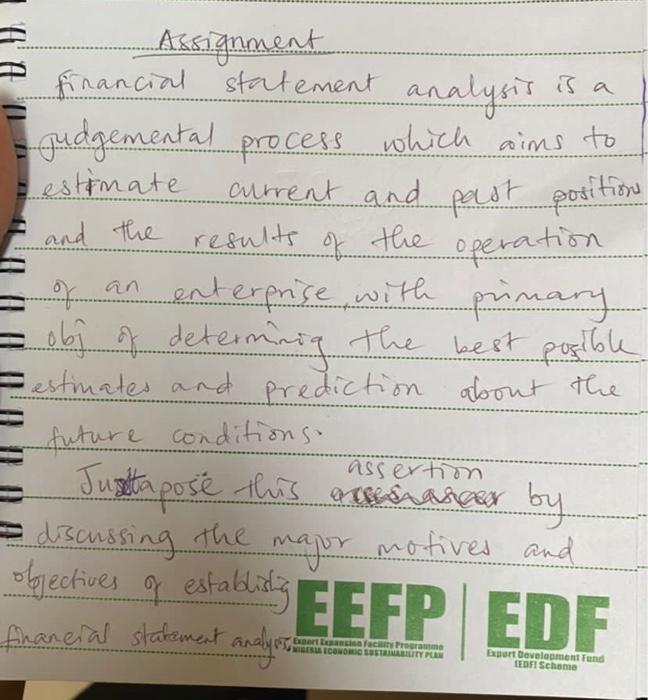 Assignment
financial statement analysis is a
judgemental process which aims to
estimate current and past position
and the results of the operation
of an enterprise, with primary
obj of determinig the best posible
estimates and prediction about the
future conditions.
assertion
Juxtapose this by
discussing the major motives and
objectives of establishig
financial statement analysis.
EEFP
Export Expansion Facility Programme
NIGERIA ECONOMIC SUSTAINABILITY PLAN
EDF
Export Development Fund
(EDF) Scheme